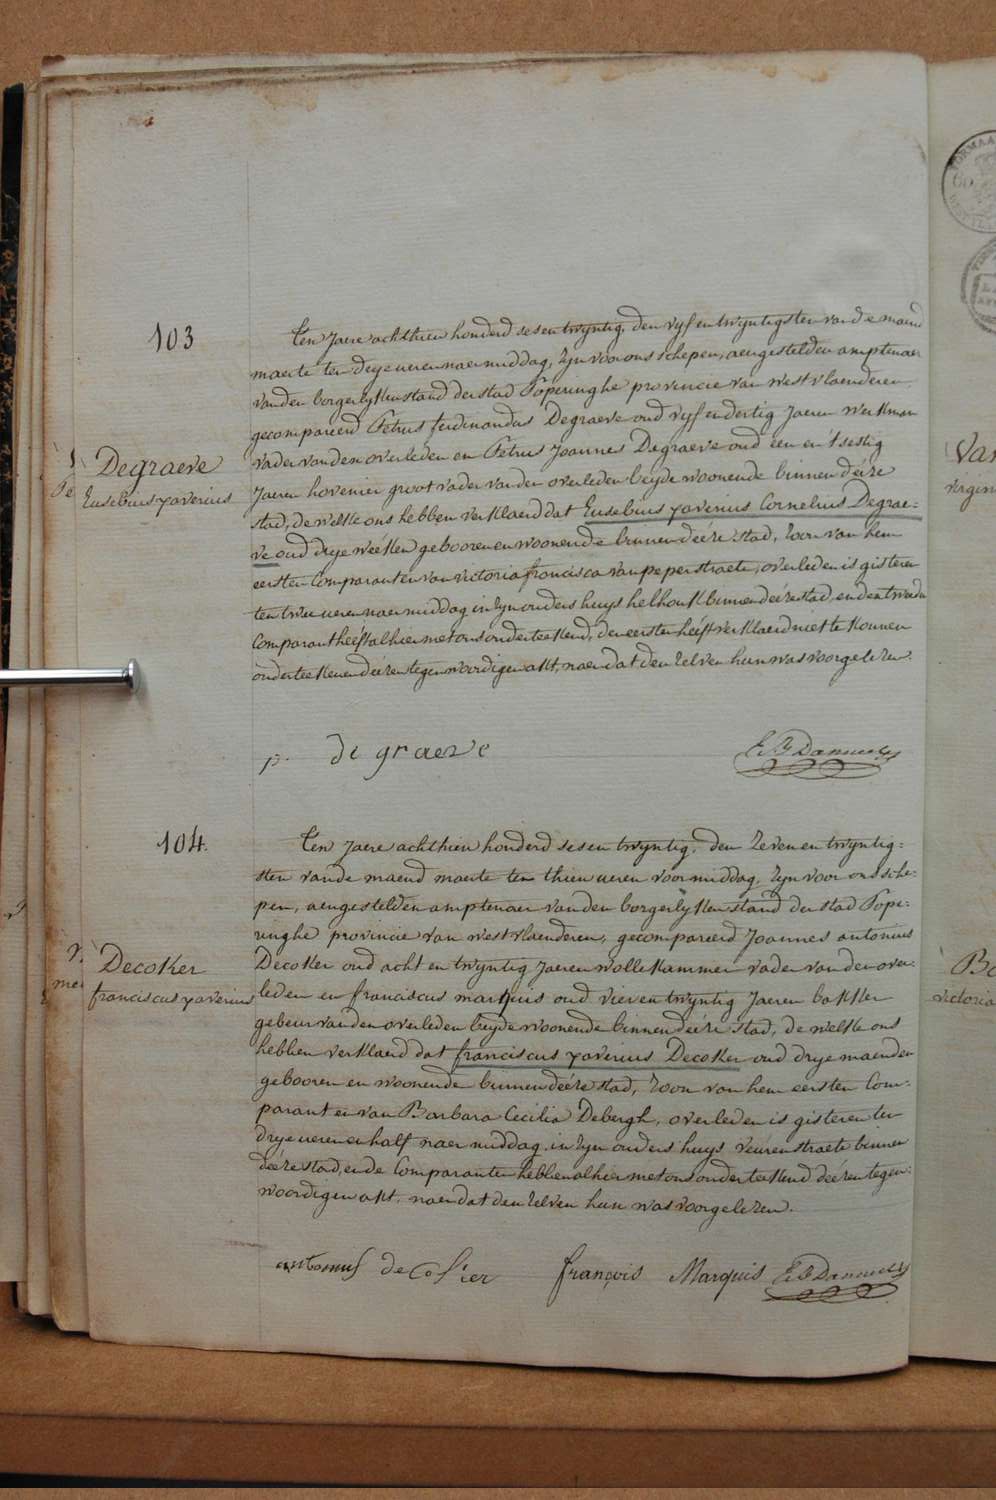 103
Degraeve
Eusebius xaverius
Ten jaere achthien honderd sesentwyntig, den vyfentwyntigsten van de maend
maerte ten drye ueren naermiddag, zyn voor ons schepen, aengestelden amptenaer
van den borgerlyken stand der stad Poperinghe provincie van westvlaenderen
gecompareerd Petrus ferdinandus Degraeve oud vyf en dertig jaeren werkman
vader van den overleden en Petrus Joannes Degraeve oud een en 't sestig
jaeren hovenier grootvader van den overleden beyde woonende binnen deéze
stad, de welke ons hebben verklaerd dat Eusebius xaverius Cornelius Degrae=
ve oud drye weéken gebooren en woonende binnen deéze stad, zoon van hem
eersten Comparant en van victoria francisca vanpeperstraete, overleden is gisteren
ten twee ueren naermiddag in zyn ouders huys helhouk binnen deéze stad, en den tweeden
Comparant heéft alhier met ons onderteekend, den eersten heéft verklaerd niet te konnen
onderteekenen deezen tegenwoordigen akt, naer dat den zelven hun was voorgelezen.
p. de graeve
104.
Decoker
franciscus xaverius
Ten jaere achthien honderd sesentwyntig, den zevenentwyntig=
sten van de maend maerte ten thien ueren voormiddag, zyn voor ons sche=
pen, aengestelden amptenaer van den borgerlyken stand der stad Pope=
ringhe provincie van westvlaenderen, gecompareerd Joannes antonius
Decoker oud acht en twyntig jaeren wollekammer vader van den over=
leden en franciscus marquis oud vierentwyntig jaeren bakker
gebeur van den overleden beyde woonende binnen deéze stad, de welke ons
hebben verklaerd dat franciscus xaverius Decoker oud drye maenden
gebooren en woonende binnen deéze stad, zoon van hem eersten Com=
parant en van Barbara Cecilia Debergh, overleden is gisteren ten
drye ueren en half naermiddag, in zyn ouders huys veurenstraete binnen
deéze stad, en de Comparanten hebben alhier met ons onderteekend deezen tegen=
woordigen akt. naer dat den zelven hun was voorgelezen.
antonius
françois Marquis